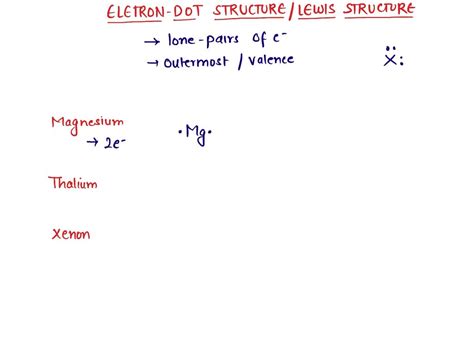 ELETRON-DOT STRUCTURE/LEWIS STRUCTURE
→ lone-pairs of e⁻
→ outermost / valence
Ẍ:
Magnesium
→ 2e⁻
•Mg•
Thalium
Xenon